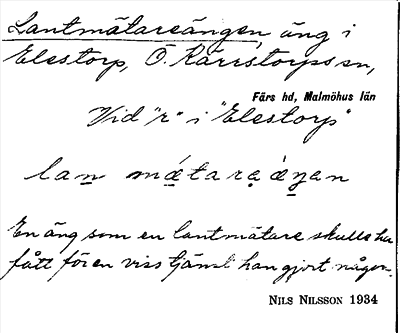 Lantmätareängen, äng i
Elestorp, Ö. Kärrstorps sn,
Färs hd, Malmöhus län
Vid "r" i "Elestorp"
lan mǽtara ǽŋen
En äng som en lantmätare skulle ha
fått för en viss tjänst han gjort någon.
NILS NILSSON 1934